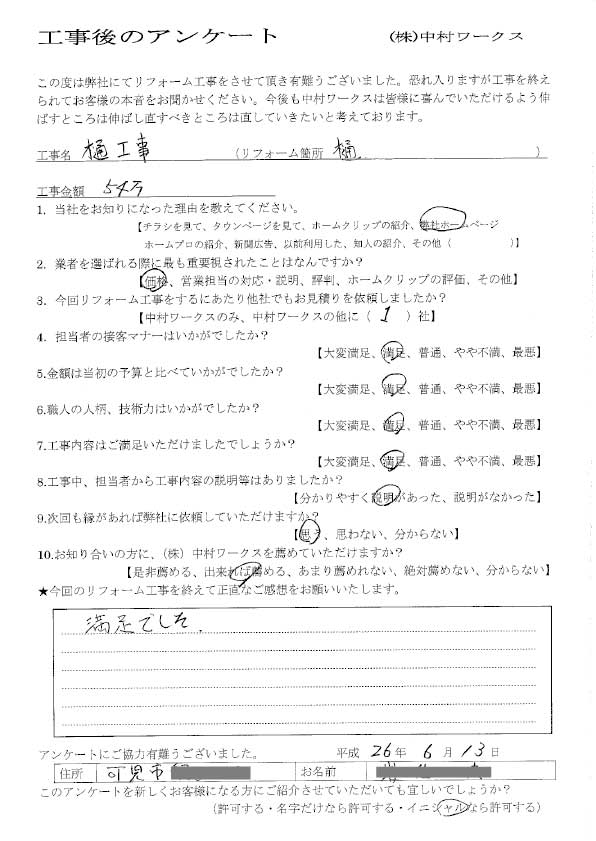 工事後のアンケート
(株)中村ワークス
この度は弊社にてリフォーム工事をさせて頂き有難うございました。恐れ入りますが工事を終え
られてお客様の本音をお聞かせください。今後も中村ワークスは皆様に喜んでいただけるよう伸
ばすところは伸ばし直すべきところは直していきたいと考えております。
工事名 樋工事 (リフォーム箇所 樋 )
工事金額 54万
1. 当社をお知りになった理由を教えてください。
【チラシを見て、タウンページを見て、ホームクリップの紹介、弊社ホームページ
ホームプロの紹介、新聞広告、以前利用した、知人の紹介、その他( )】
2. 業者を選ばれる際に最も重要視されたことはなんですか?
【価格、営業担当の対応・説明、評判、ホームクリップの評価、その他】
3. 今回リフォーム工事をするにあたり他社でもお見積りを依頼しましたか?
【中村ワークスのみ、中村ワークスの他に( 1 )社】
4. 担当者の接客マナーはいかがでしたか?
【大変満足、満足、普通、やや不満、最悪】
5.金額は当初の予算と比べていかがでしたか?
【大変満足、満足、普通、やや不満、最悪】
6.職人の人柄、技術力はいかがでしたか?
【大変満足、満足、普通、やや不満、最悪】
7.工事内容はご満足いただけましたでしょうか?
【大変満足、満足、普通、やや不満、最悪】
8.工事中、担当者から工事内容の説明等はありましたか?
【分かりやすく説明があった、説明がなかった】
9.次回も縁があれば弊社に依頼していただけますか?
【思う、思わない、分からない】
10.お知り合いの方に、(株)中村ワークスを薦めていただけますか?
【是非薦める、出来れば薦める、あまり薦めれない、絶対薦めない、分からない】
★今回のリフォーム工事を終えて正直なご感想をお願いいたします。
満足でした.
アンケートにご協力有難うございました。 平成 26年 6月13日
住所 可児市 お名前
このアンケートを新しくお客様になる方にご紹介させていただいても宜しいでしょうか?
(許可する・名字だけなら許可する・イニシャルなら許可する)